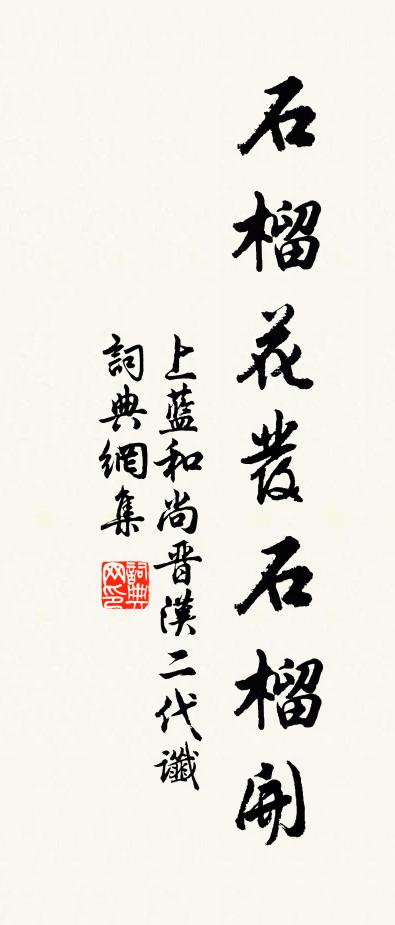 石榴花發石榴開
上藍和尚晉漢二代讖
詞典網集
詞典网印